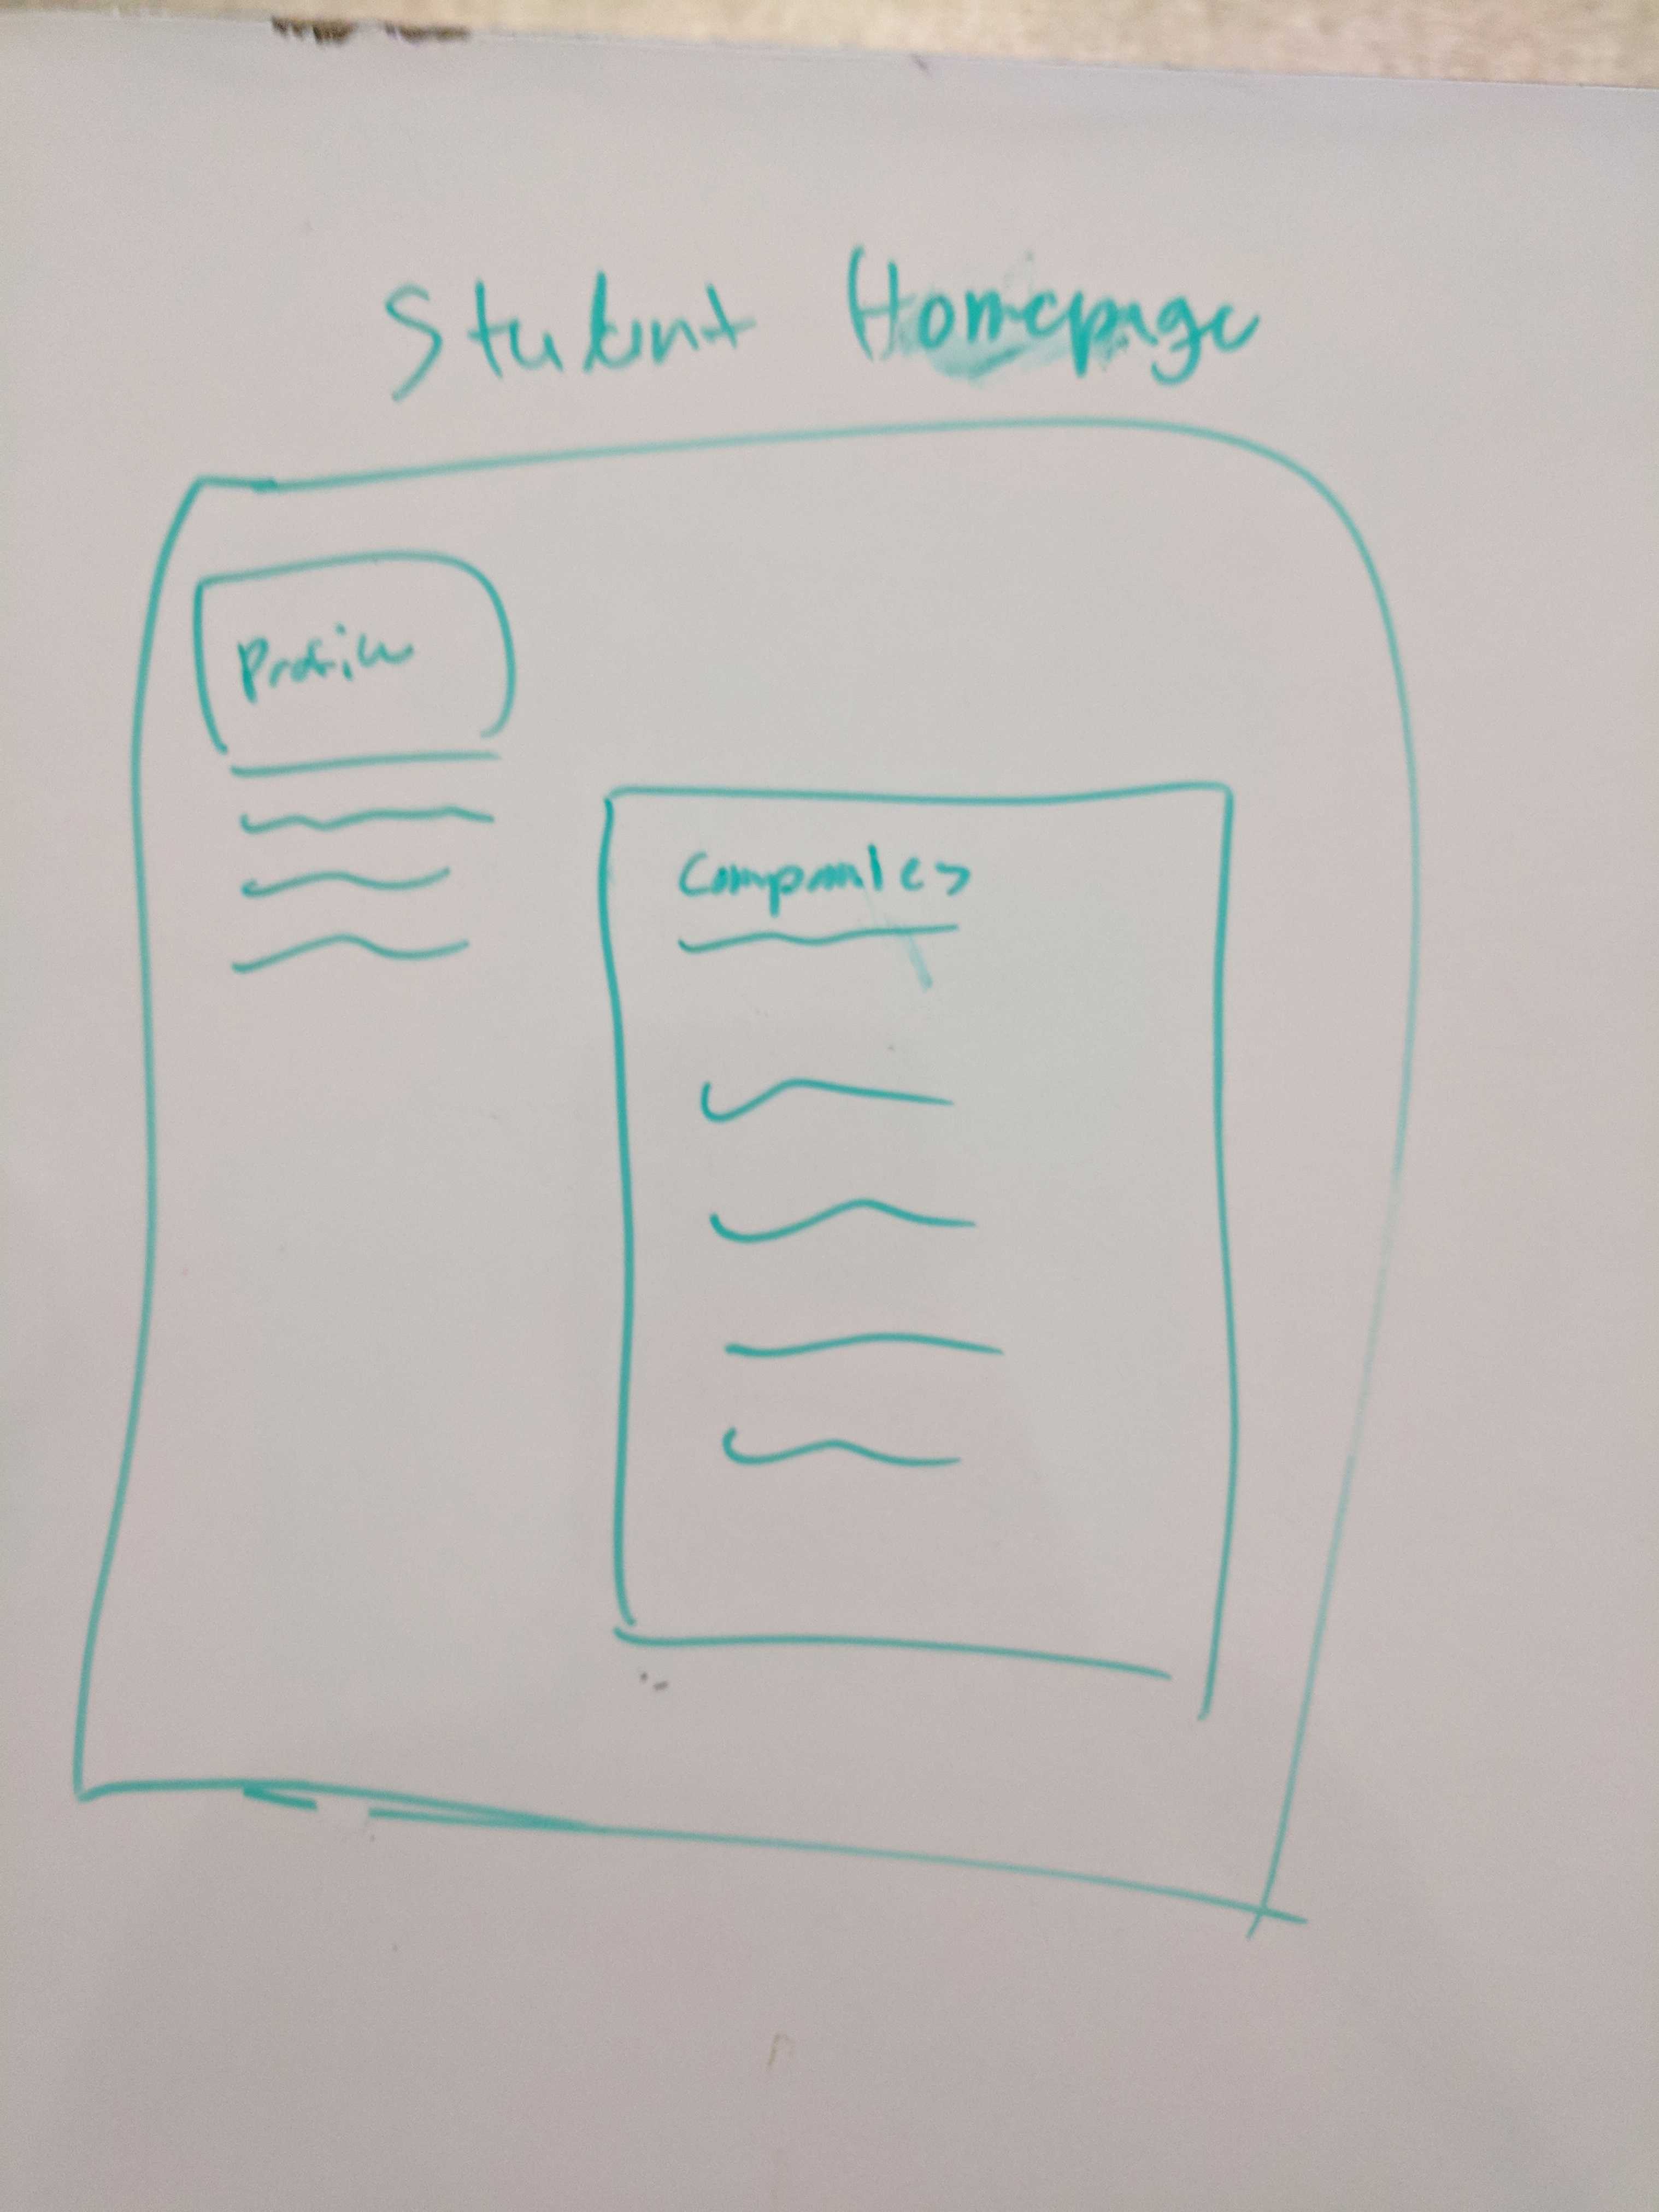 Student Homepage
Profile
Companies